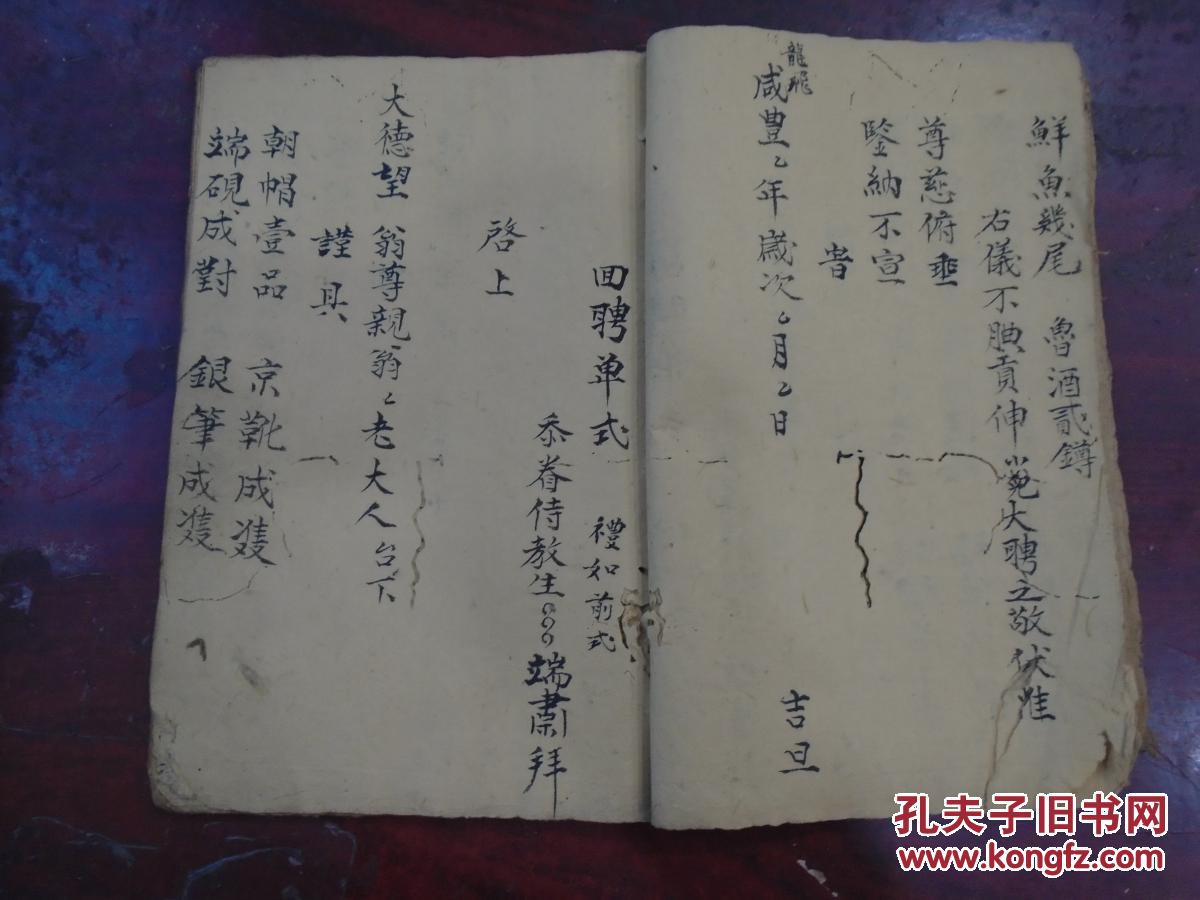 鮮魚幾尾 魯酒貳鐏
右儀不腆貢伸 大聘之敬伏惟
尊慈俯垂
鑒納不宣
旹
龍飛
咸豊〻年歲次〻月〻日 吉旦
回聘单式 禮如前式
忝眷侍教生〻〻〻端肅拜
啓上
大德望 翁尊親翁〻老大人台下
謹具
朝帽壹品 京靴成䨇
端硯成對 銀筆成䨇
孔夫子旧书网
www.kongfz.com